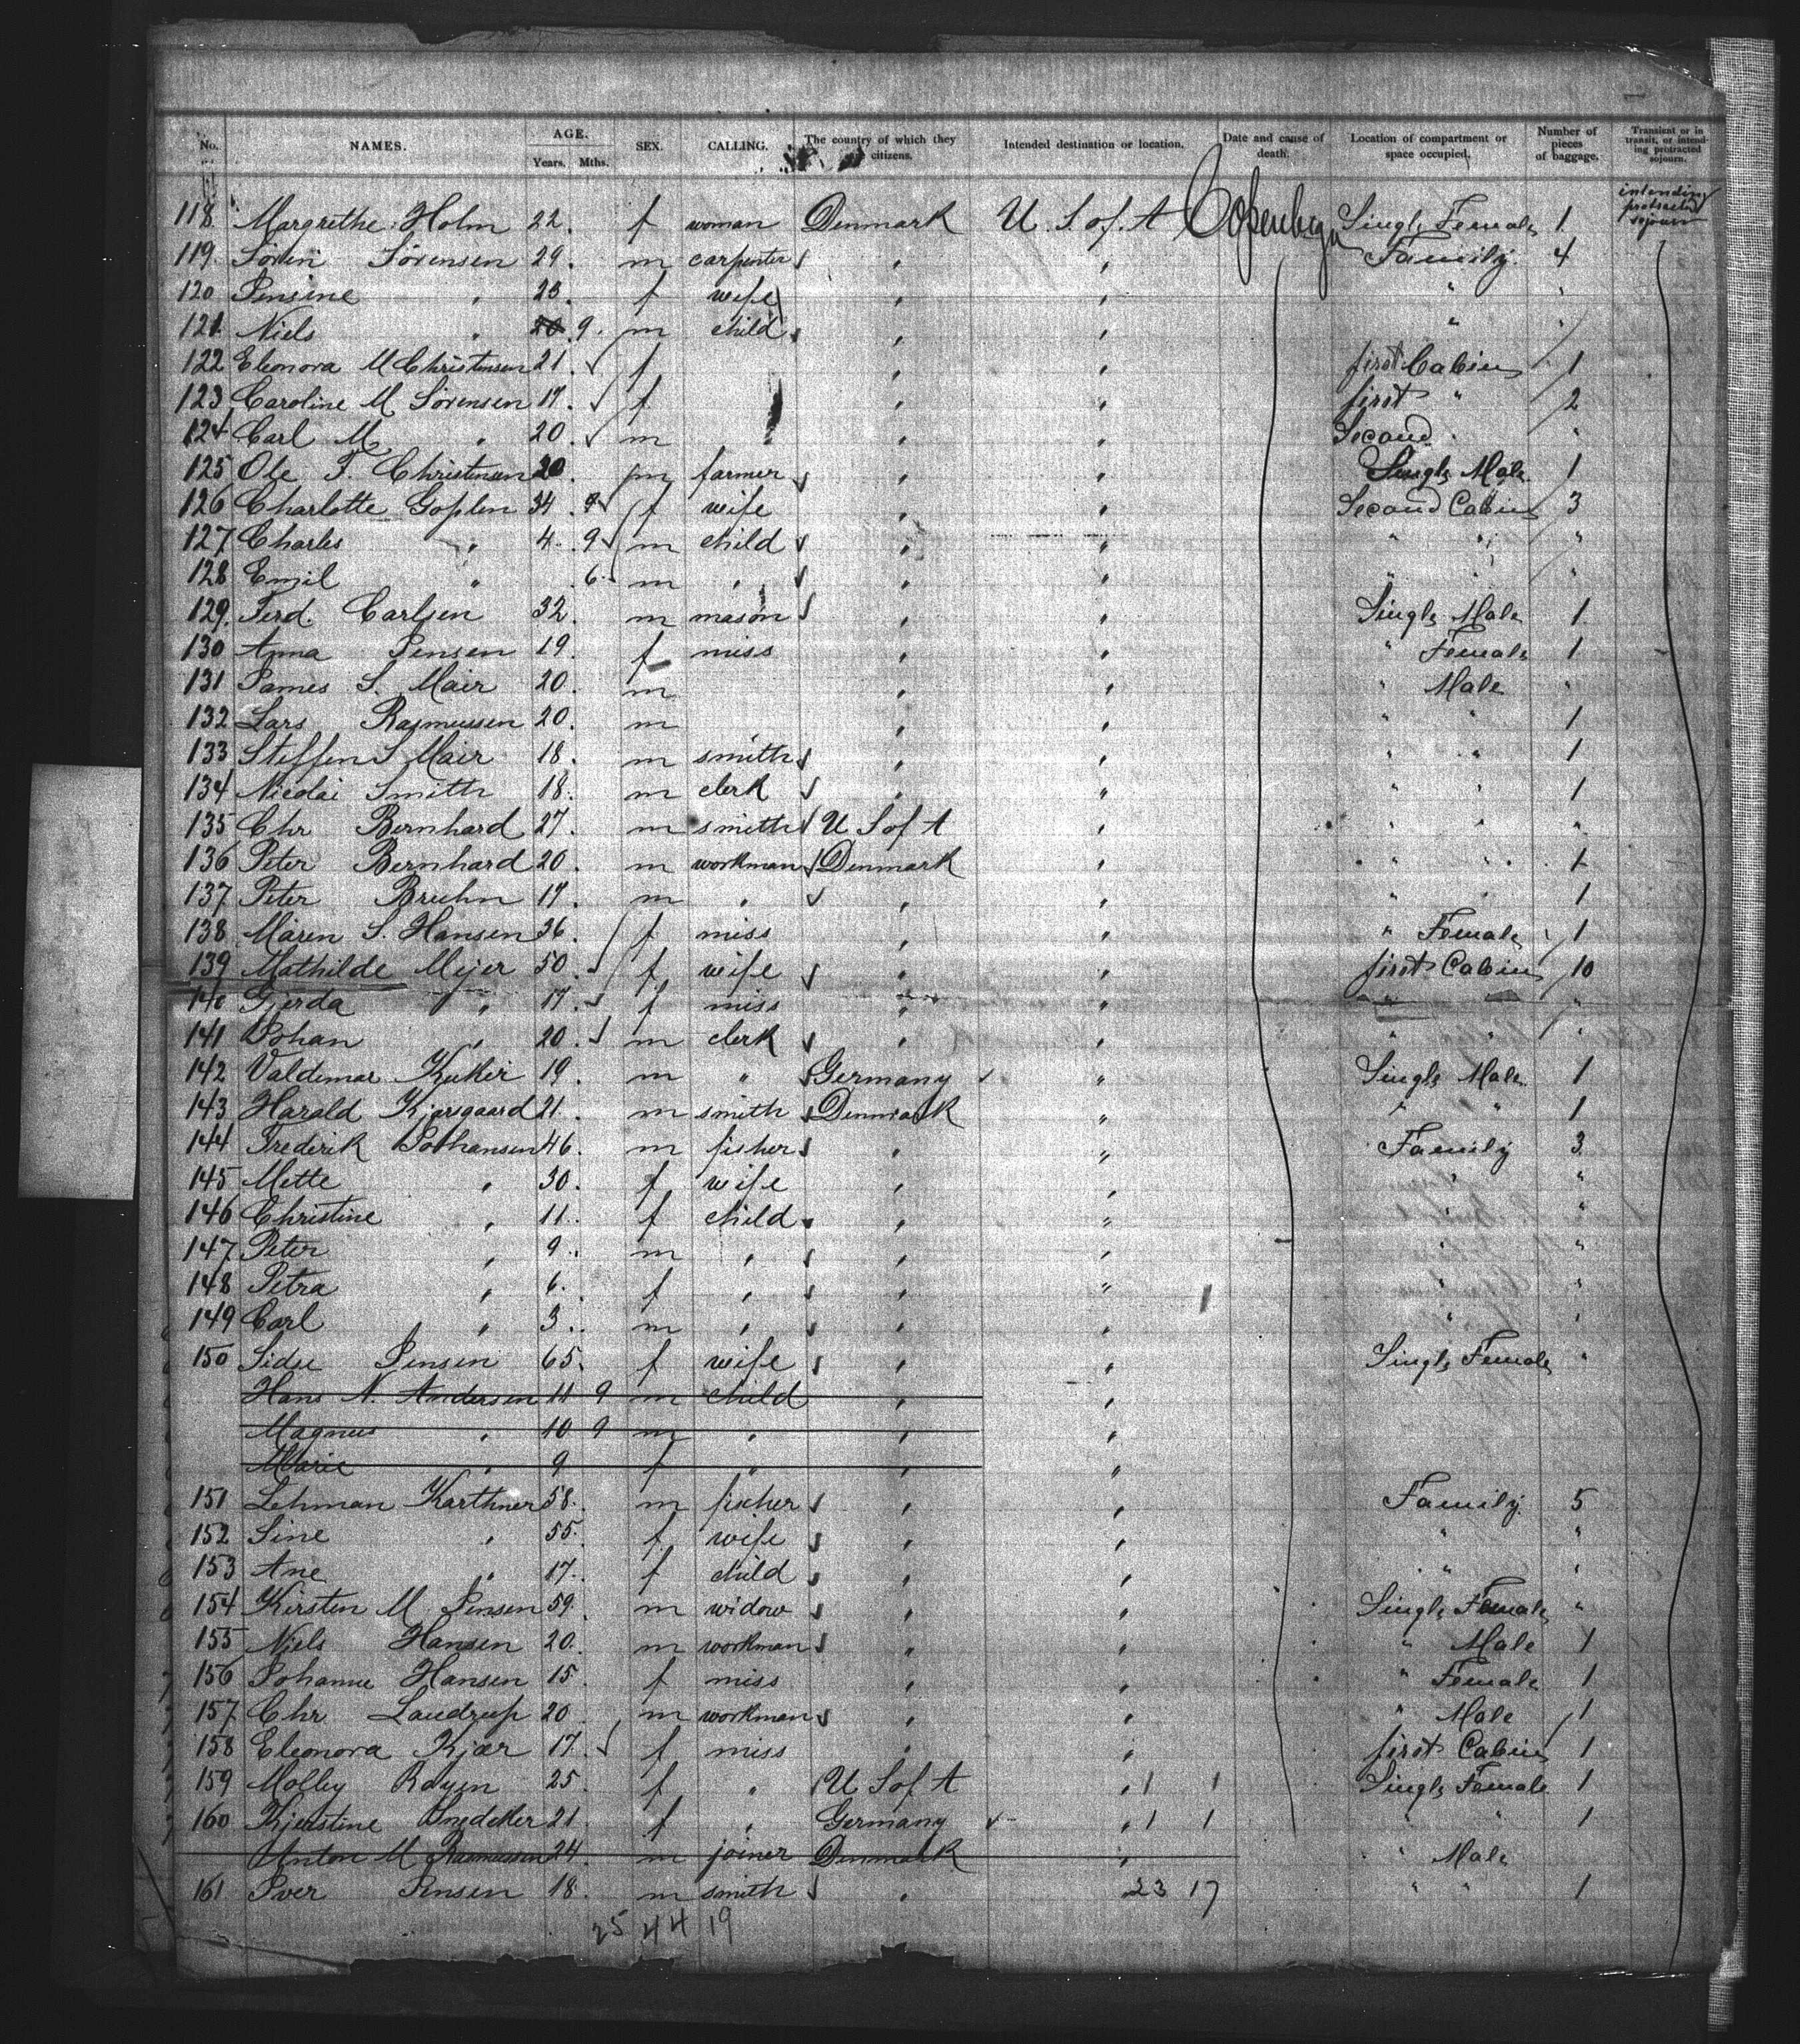 No. NAMES. AGE. Years. Mths. SEX. CALLING. The country of which they citizens. Intended destination or location. Date and cause of death. Location of compartment or space occupied. Number of pieces of baggage. Transient or in transit, or intending protracted sojourn.
118 Margrethe Holm 22. f woman Denmark U. S of. A Single Female 1 intending protracted sojourn
119. Sören Sörensen 29. m carpenter " " Family. 4
120 Jensine " 23. f wife " " " "
121. Niels " 9. m child " " " "
122 Eleonora M Christensen 21. f " " first Cabin 1
123 Caroline M Sörensen 17. f " " first " 2
124 Carl M " 20. m " " Second "
125 Ole F. Christensen 20 m farmer " " Single Male 1
126 Charlotte Goplen 34. f wife " " Second Cabin 3
127 Charles " 4. 9 m child " " " " "
128 Emil " 6. m " " " " "
129. Ferd. Carlsen 32. m mason " " Single Male 1
130 Anna Jensen 19. f miss " " " Female 1
131 James S. Mair 20. m " " " Male "
132 Lars Rasmussen 20. m " " " " 1
133 Steffen S Mair 18. m smith " " " " 1
134 Nicolai Smith 18. m clerk " " " " 1
135 Chr Bernhard 27. m smith U S of A " " " "
136 Peter Bernhard 20. m workman Denmark " " " 1
137 Peter Bruhn 17. m " " " " " 1
138 Maren S. Hansen 36. f miss " " " Female 1
139 Mathilde Mejer 50. f wife " " first Cabin 10
140 Gjerda " 17. f miss " " " " "
141 Johan " 20. m clerk " " " " "
142 Valdemar Kuker 19. m " Germany " Single Male 1
143 Harald Kjærsgaard 21. m smith Denmark " " " 1
144 Frederik Johansen 46. m fisher " " Family 3
145 Mette " 30. f wife " " " "
146 Christine " 11. f child " " " "
147 Peter " 9. m " " " " "
148 Petra " 6. f " " " " "
149 Carl " 3. m " " " " "
150 Sidse Jensen 65. f wife " " Single Female "
Hans N. Andersen 11 9 m child " "
Magnus " 10 9 m " " "
Marie " 9 f " " "
151 Lehman Karthner 58. m fischer " " Family. 5
152 Sine " 55. f wife " " " "
153 Ane " 17. f child " " " "
154 Kirsten M Jensen 59. m widow " " Single Female "
155 Niels Hansen 20. m workman " " " Male 1
156 Johanne Hansen 15. f miss " " " Female 1
157 Chr Laudrup 20 m workman " " " Male 1
158 Eleonora Kjær 17. f miss " " first Cabin 1
159 Molley Royen 25. f " U S of A " 1 1 Single Female 1
160 Kjerstine Snedeker 21. f " Germany " 1 1 " " 1
Anton M Rasmussen 24. m joiner Denmark " " Male
161 Iver Jensen 18. m smith " 23 17 " " 1
25 44 19